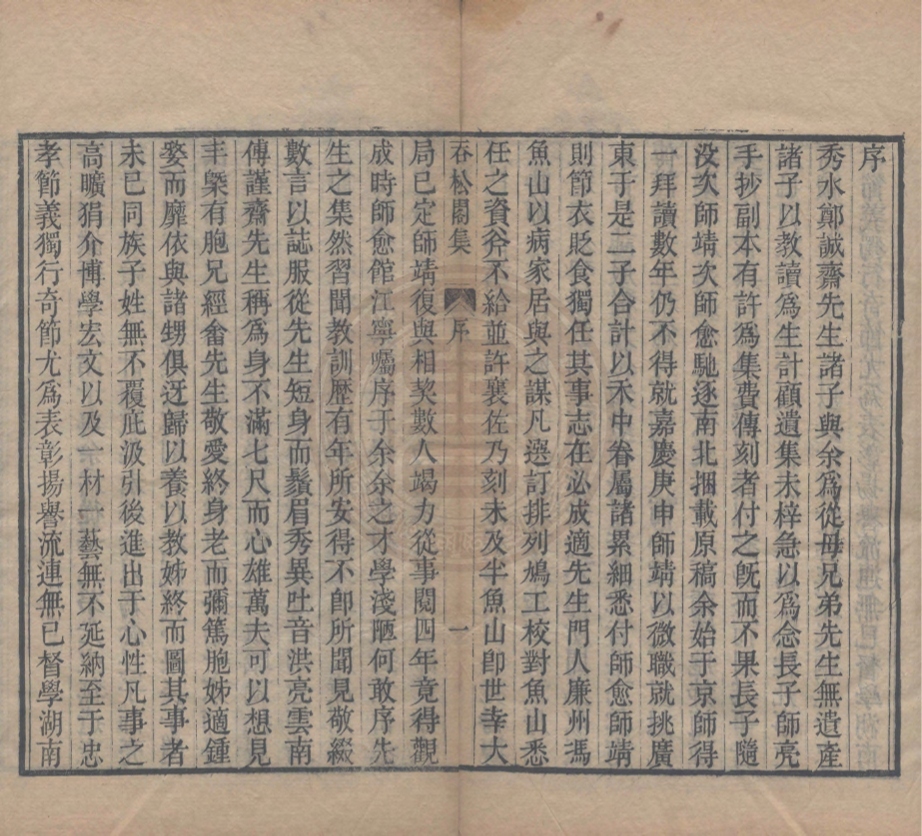 序
秀水鄭誠齋先生諸子與余爲從母兄弟先生無遺產
諸子以教讀爲生計顧遺集未梓急以爲念長子師亮
手抄副本有許爲集費傳刻者付之旣而不果長子隨
没次師靖次師愈馳逐南北捆載原稿余始于京師得
一拜讀數年仍不得就嘉慶庚申師靖以微職就挑廣
東于是二子合計以禾中眷屬諸累細悉付師愈師靖
則節衣貶食獨任其事志在必成適先生門人廉州馮
魚山以病家居與之謀凡選訂排列鳩工校對魚山悉
任之資斧不給並許襄佐乃刻未及半魚山卽世幸大
吞松閣集 序 一
局已定師靖復與相契數人竭力從事閱四年竟得觀
成時師愈館江寧囑序于余余之才學淺陋何敢序先
生之集然習聞教訓歷有年所安得不卽所聞見敬綴
數言以誌服從先生短身而鬚眉秀異吐音洪亮雲南
傅謹齋先生稱爲身不滿七尺而心雄萬夫可以想見
丰槩有胞兄經畬先生敬愛終身老而彌篤胞姊適鍾
嫠而靡依與諸甥俱迓歸以養以教姊終而圖其事者
未已同族子姓無不覆庇汲引後進出于心性凡事之
高曠狷介博學宏文以及一材一藝無不延納至于忠
孝節義獨行奇節尤爲表彰揚譽流連無已督學湖南